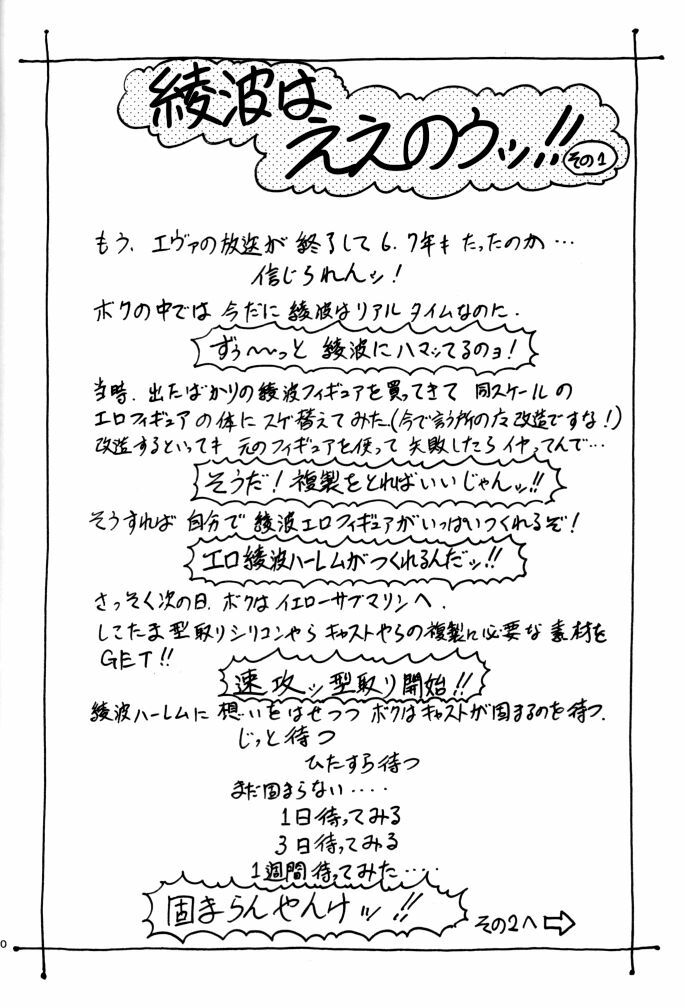 綾波は
ええのウッ!!
その1
もう、エヴァの放送が終了して6.7年もたったのか…
信じられんッ!
ボクの中では今だに綾波はリアルタイムなのに.
ずぅ〜〜っと綾波にハマッてるのョ!
当時、出たばかりの綾波フィギュアを買ってきて同スケールの
エロフィギュアの体にスゲ替えてみた.(今で言う所の左改造ですな!)
改造するといっても元のフィギュアを使って失敗したらイヤってんで…
そうだ!複製をとればいいじゃんッ!!
そうすれば自分で綾波エロフィギュアがいっぱいつくれるぞ!
エロ綾波ハーレムがつくれるんだッ!!
さっそく次の日、ボクはイエローサブマリンへ.
しこたま型取りシリコンやらキャストやらの複製に必要な素材を
GET!!
速攻ッ型取り開始!!
綾波ハーレムに想いをはせつつボクはキャストが固まるのを待つ.
じっと待つ
ひたすら待つ
まだ固まらない‥‥
1日待ってみる
3日待ってみる
1週間待ってみた‥‥
固まらんやんけッ!!
その2へ⇨
0